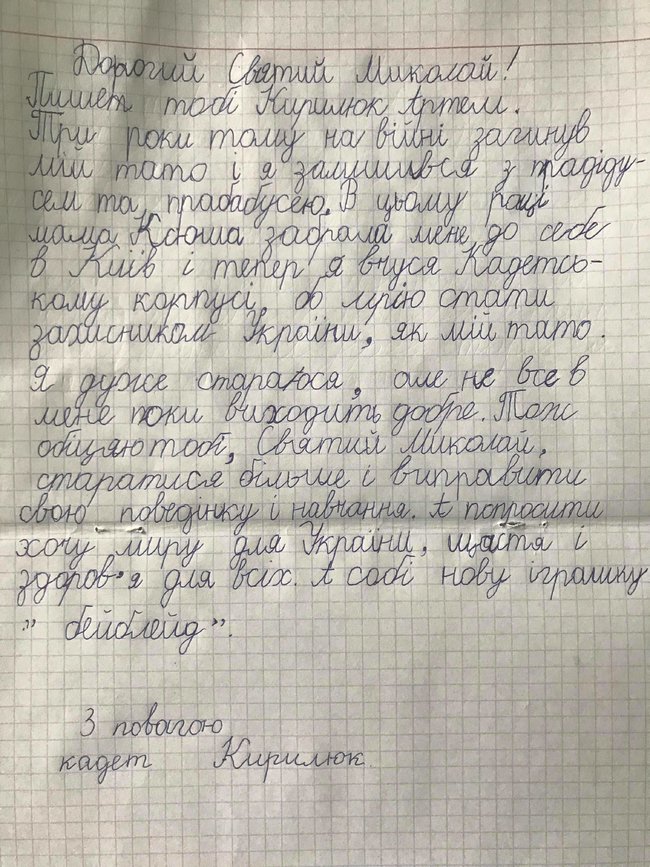 Дорогий Святий Миколай!
Пишет тобі Кирилюк Артем.
Три роки тому на війні загинув
мій тато і я залишився з традіду-
сем та прабабусею. В цьому році
мама Ксюша забрала мене до себе
в Київ і тепер я вчуся Кадетсь-
кому корпусі, бо мрію стати
захисником України, як мій тато.
Я дуже стараюся, але не все в
мене поки виходить добре. Тож
обіцяю тобі, Святий Миколай,
старатися більше і виправити
свою поведінку і навчання. А попросити
хочу миру для України, щастя і
здоров'я для всіх. А собі нову іграшку
" бейблейд".
З повагою
кадет Кирилюк